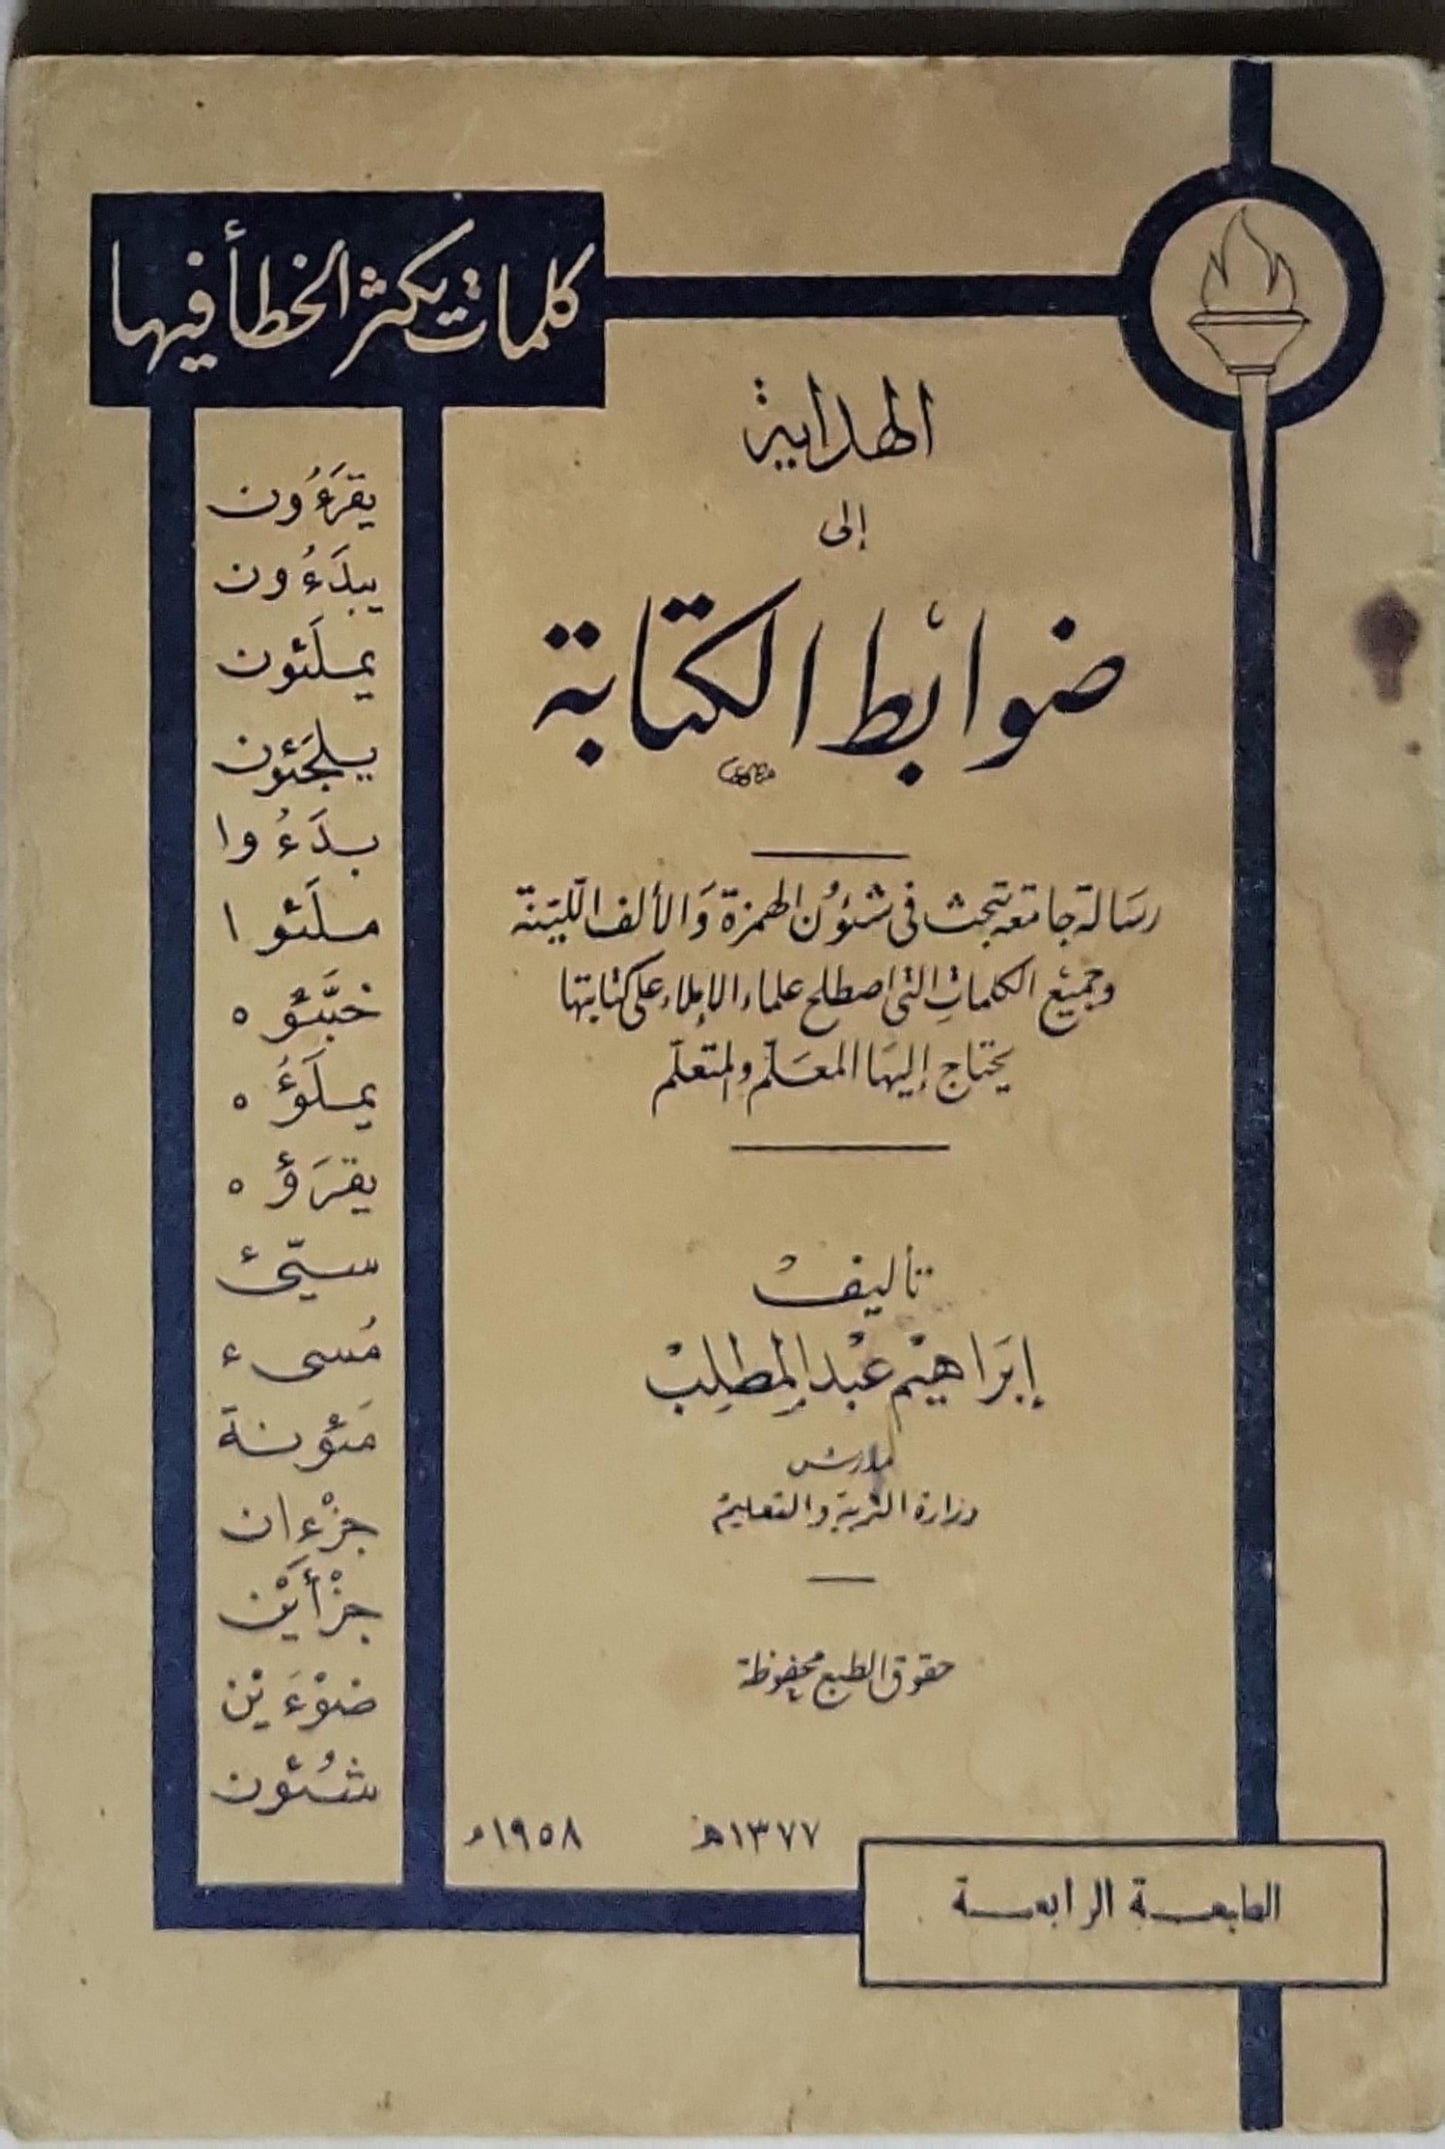 كلمات يكثر الخطأ فيها
الهداية
إلى
ضوابط الكتابة
رسَالة جامعة تبحث فى شئوُن الهمزة وَالألف اللّيّنة
وجميْع الكلماتِ التى اصطلح علماء الإملاء على كتابتها
يحتاج إليهَا المعَلّم والمتعلّم
تأليفْ
إبَراهيْم عبْد المطلِبْ
مدرس
وزارة التربية والتعليم
حقوق الطبع محفوظة
١٣٧٧هـ ١٩٥٨م
الطبعة الرابعة
يقرَءُون
يبدَءُون
يملَئون
يلجَئون
بدَءُوا
ملَئوا
خبَّئوه
يملَؤُه
يقرَؤه
سيّئ
مُسىء
مَئونة
جزْءان
جزْأَيْن
ضوْءَيْن
شُئون